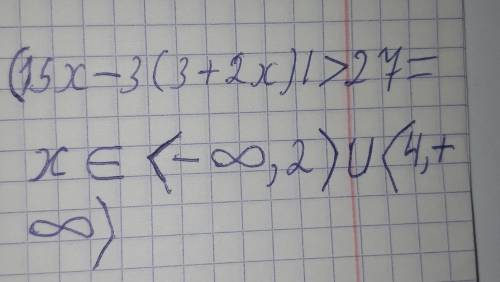 (15x-3(3+2x)|>27=
x∈(-∞,2)∪(4,+
∞)